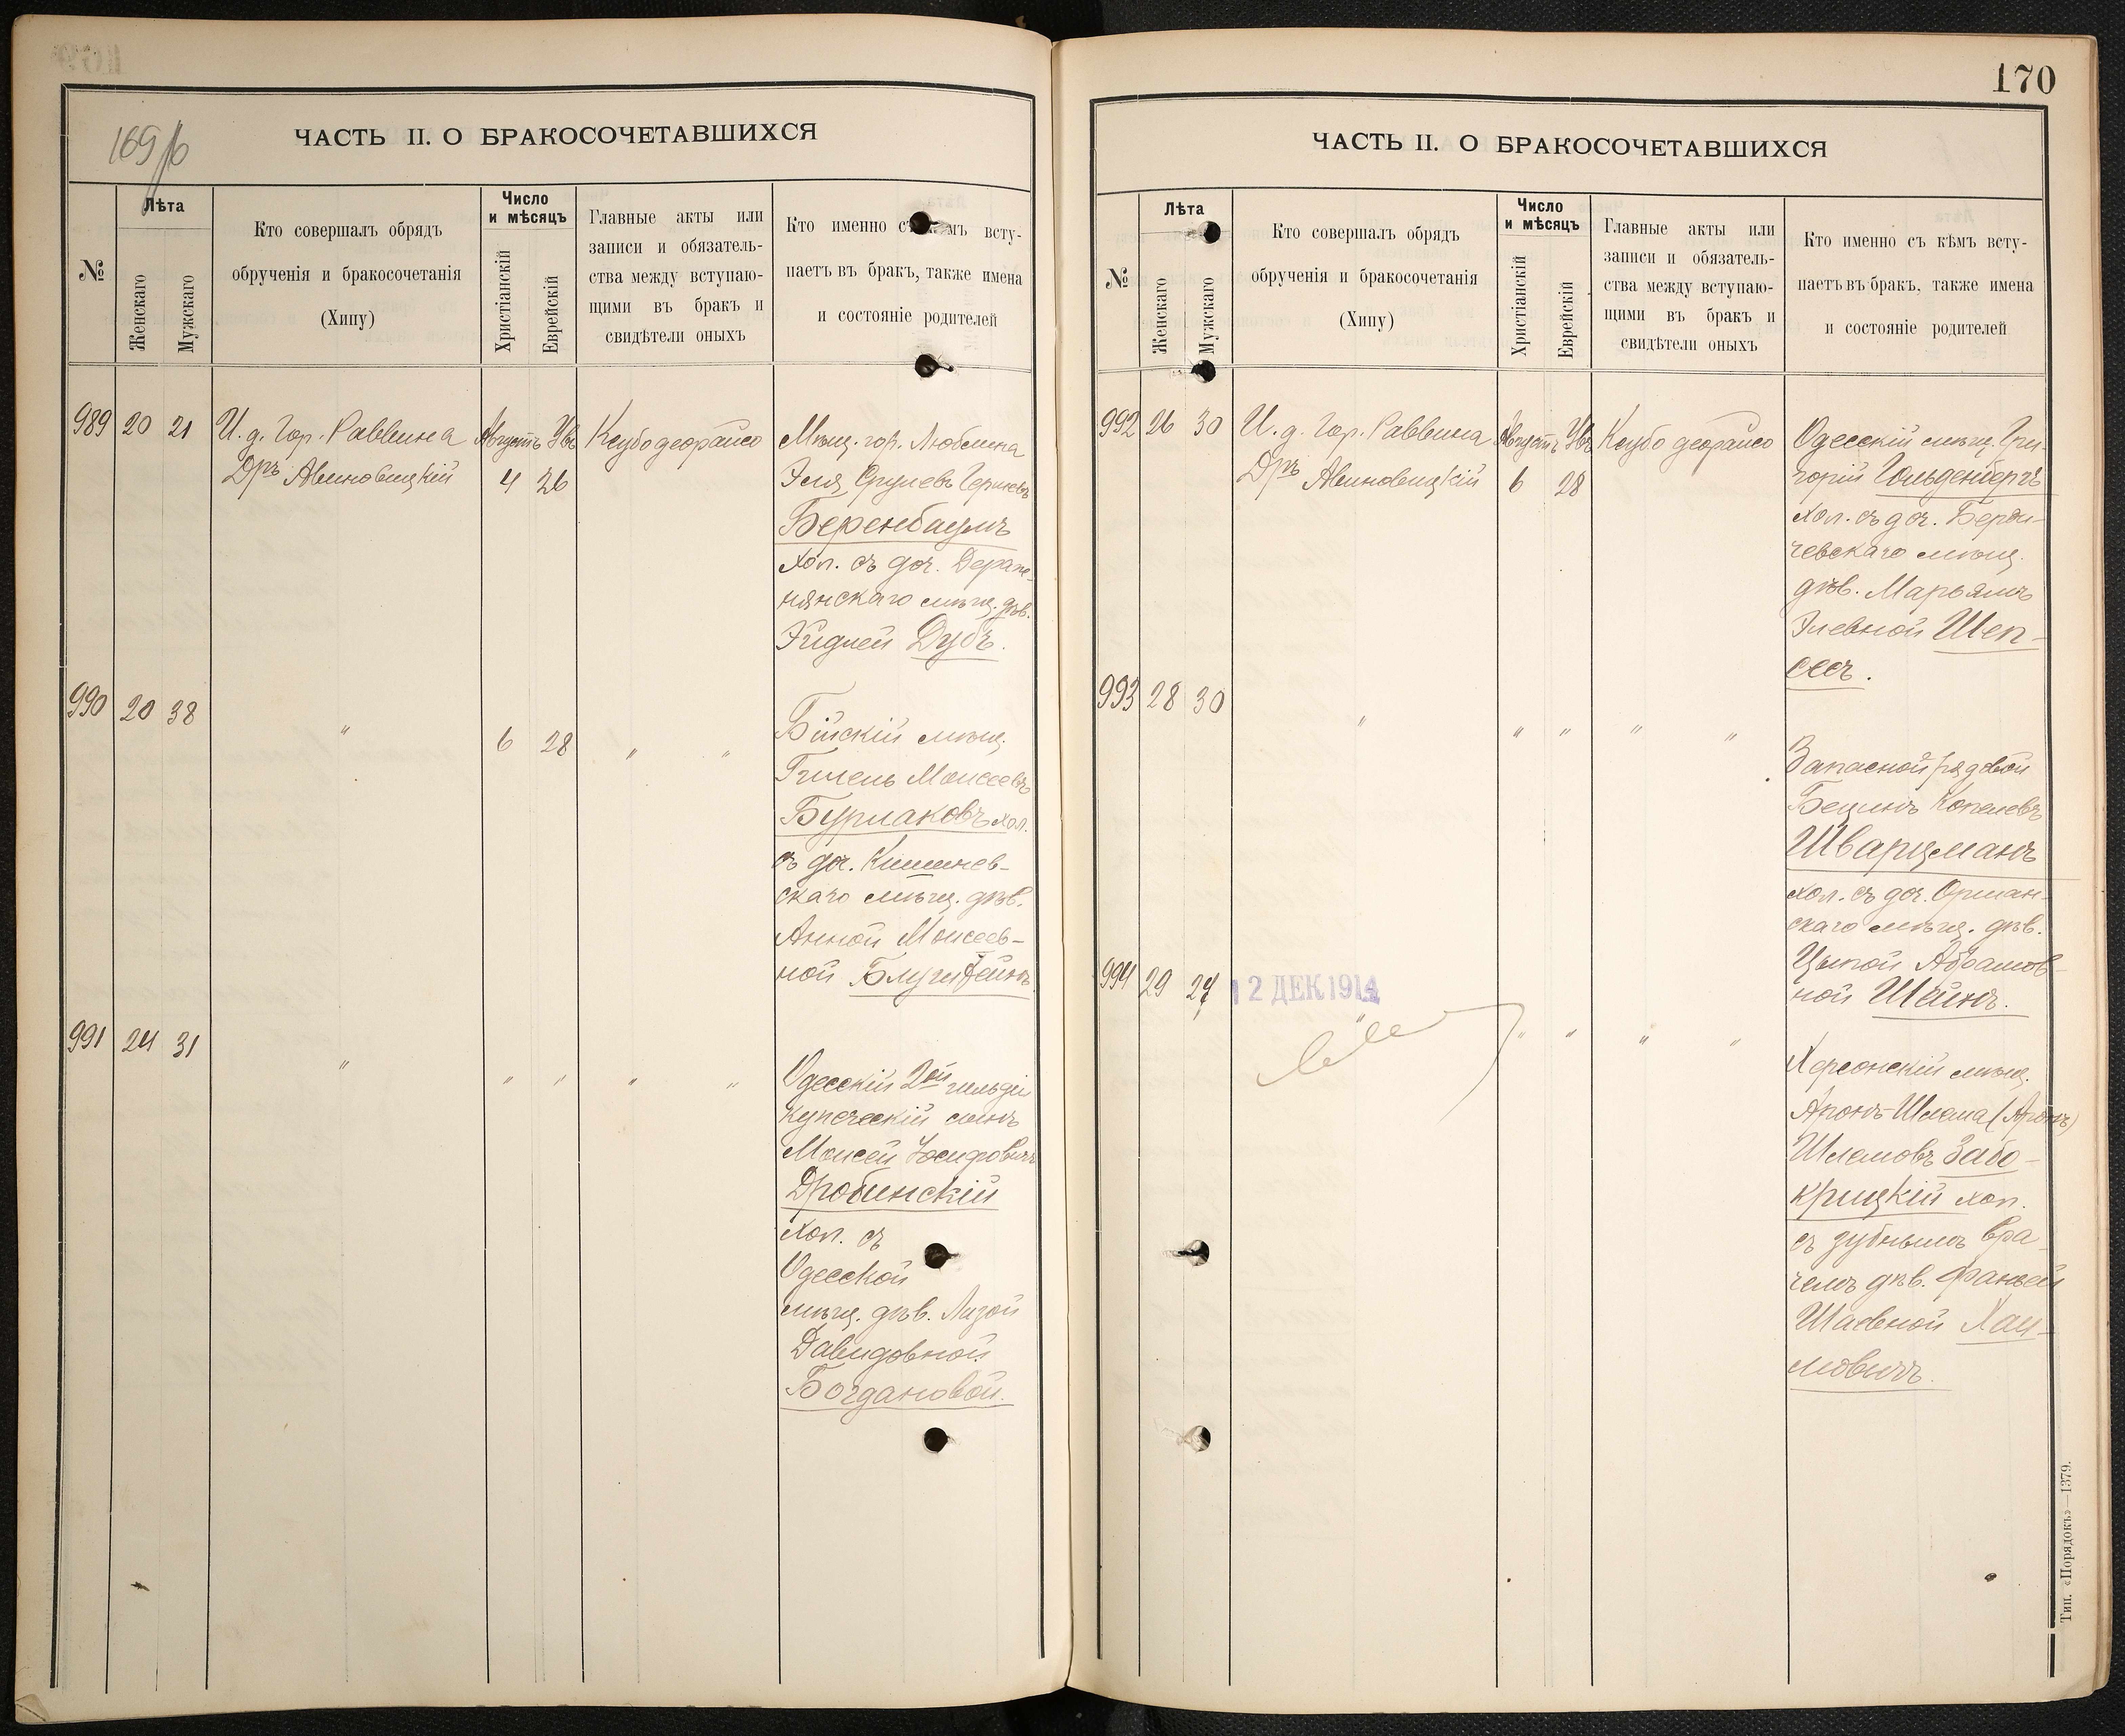 169 об
ЧАСТЬ II. О БРАКОСОЧЕТАВШИХСЯ
№
Лѣта
Женскаго
Мужскаго
Кто совершалъ обрядъ
обрученія и бракосочетанія
(Хипу)
Число
и мѣсяцъ
Христіанскій
Еврейскій
Главные акты или
записи и обязатель-
ства между вступаю-
щими въ бракъ и
свидѣтели оныхъ
Кто именно съ мъ всту-
паетъ въ бракъ, также имена
и состояніе родителей
989 20 21 И. д. Гор. Раввина Августъ Увъ Ксубо деорайсо
Дръ Авиновицкій 4 26
Мѣщ. гор. Люблина
Эля Срулевъ Гершевъ
Беренбаумъ
хол. съ доч. Дераж-
нянскаго мѣщ. дѣв.
Хидлей Дубъ.
990 20 38 " 6 28 " "
Бійскій мѣщ.
Гилель Моисеевъ
Бурлаковъ хол.
съ доч. Кишинев-
скаго мѣщ. дѣв.
Анной Моисеев-
ной Блуштейнъ
991 24 31 " " " " "
Одесскій 2ой гильдіи
купеческій сынъ
Моисей Іосифовичъ
Дробинскій
хол. съ
Одесской
мѣщ. дѣв. Лизой
Давидовной
Богдановой.
170
ЧАСТЬ II. О БРАКОСОЧЕТАВШИХСЯ
№
Лѣта
Женскаго
Мужскаго
Кто совершалъ обрядъ
обрученія и бракосочетанія
(Хипу)
Число
и мѣсяцъ
Христіанскій
Еврейскій
Главные акты или
записи и обязатель-
ства между вступаю-
щими въ бракъ и
свидѣтели оныхъ
Кто именно съ кѣмъ всту-
паетъ въ бракъ, также имена
и состояніе родителей
992 26 30 И. д. Гор. Раввина Августъ Увъ Ксубо деорайсо
Дръ Авиновицкій 6 28
Одесскій мѣщ. Гри-
горій Гольденбергъ
хол. съ доч. Берди-
чевскаго мѣщ.
дѣв. Марьямъ
Элевной Шеп-
сесъ.
993 28 30 " " " " "
Запасной рядовой
Бецинъ Копелевъ
Шварцманъ
хол. съ доч. Оршан-
скаго мѣщ. дѣв.
Ципой Абрамов-
ной Шейнъ.
994 29 27 " " " " "
12 ДЕК 1914
Херсонскій мѣщ.
Аронъ-Шлема (Аронъ)
Шлемовъ Забо-
крицкій хол.
съ зубнымъ вра-
чемъ дѣв. Фаней
Шаевной Хаи-
мовичъ.
Тип. «Порядокъ»—1379.